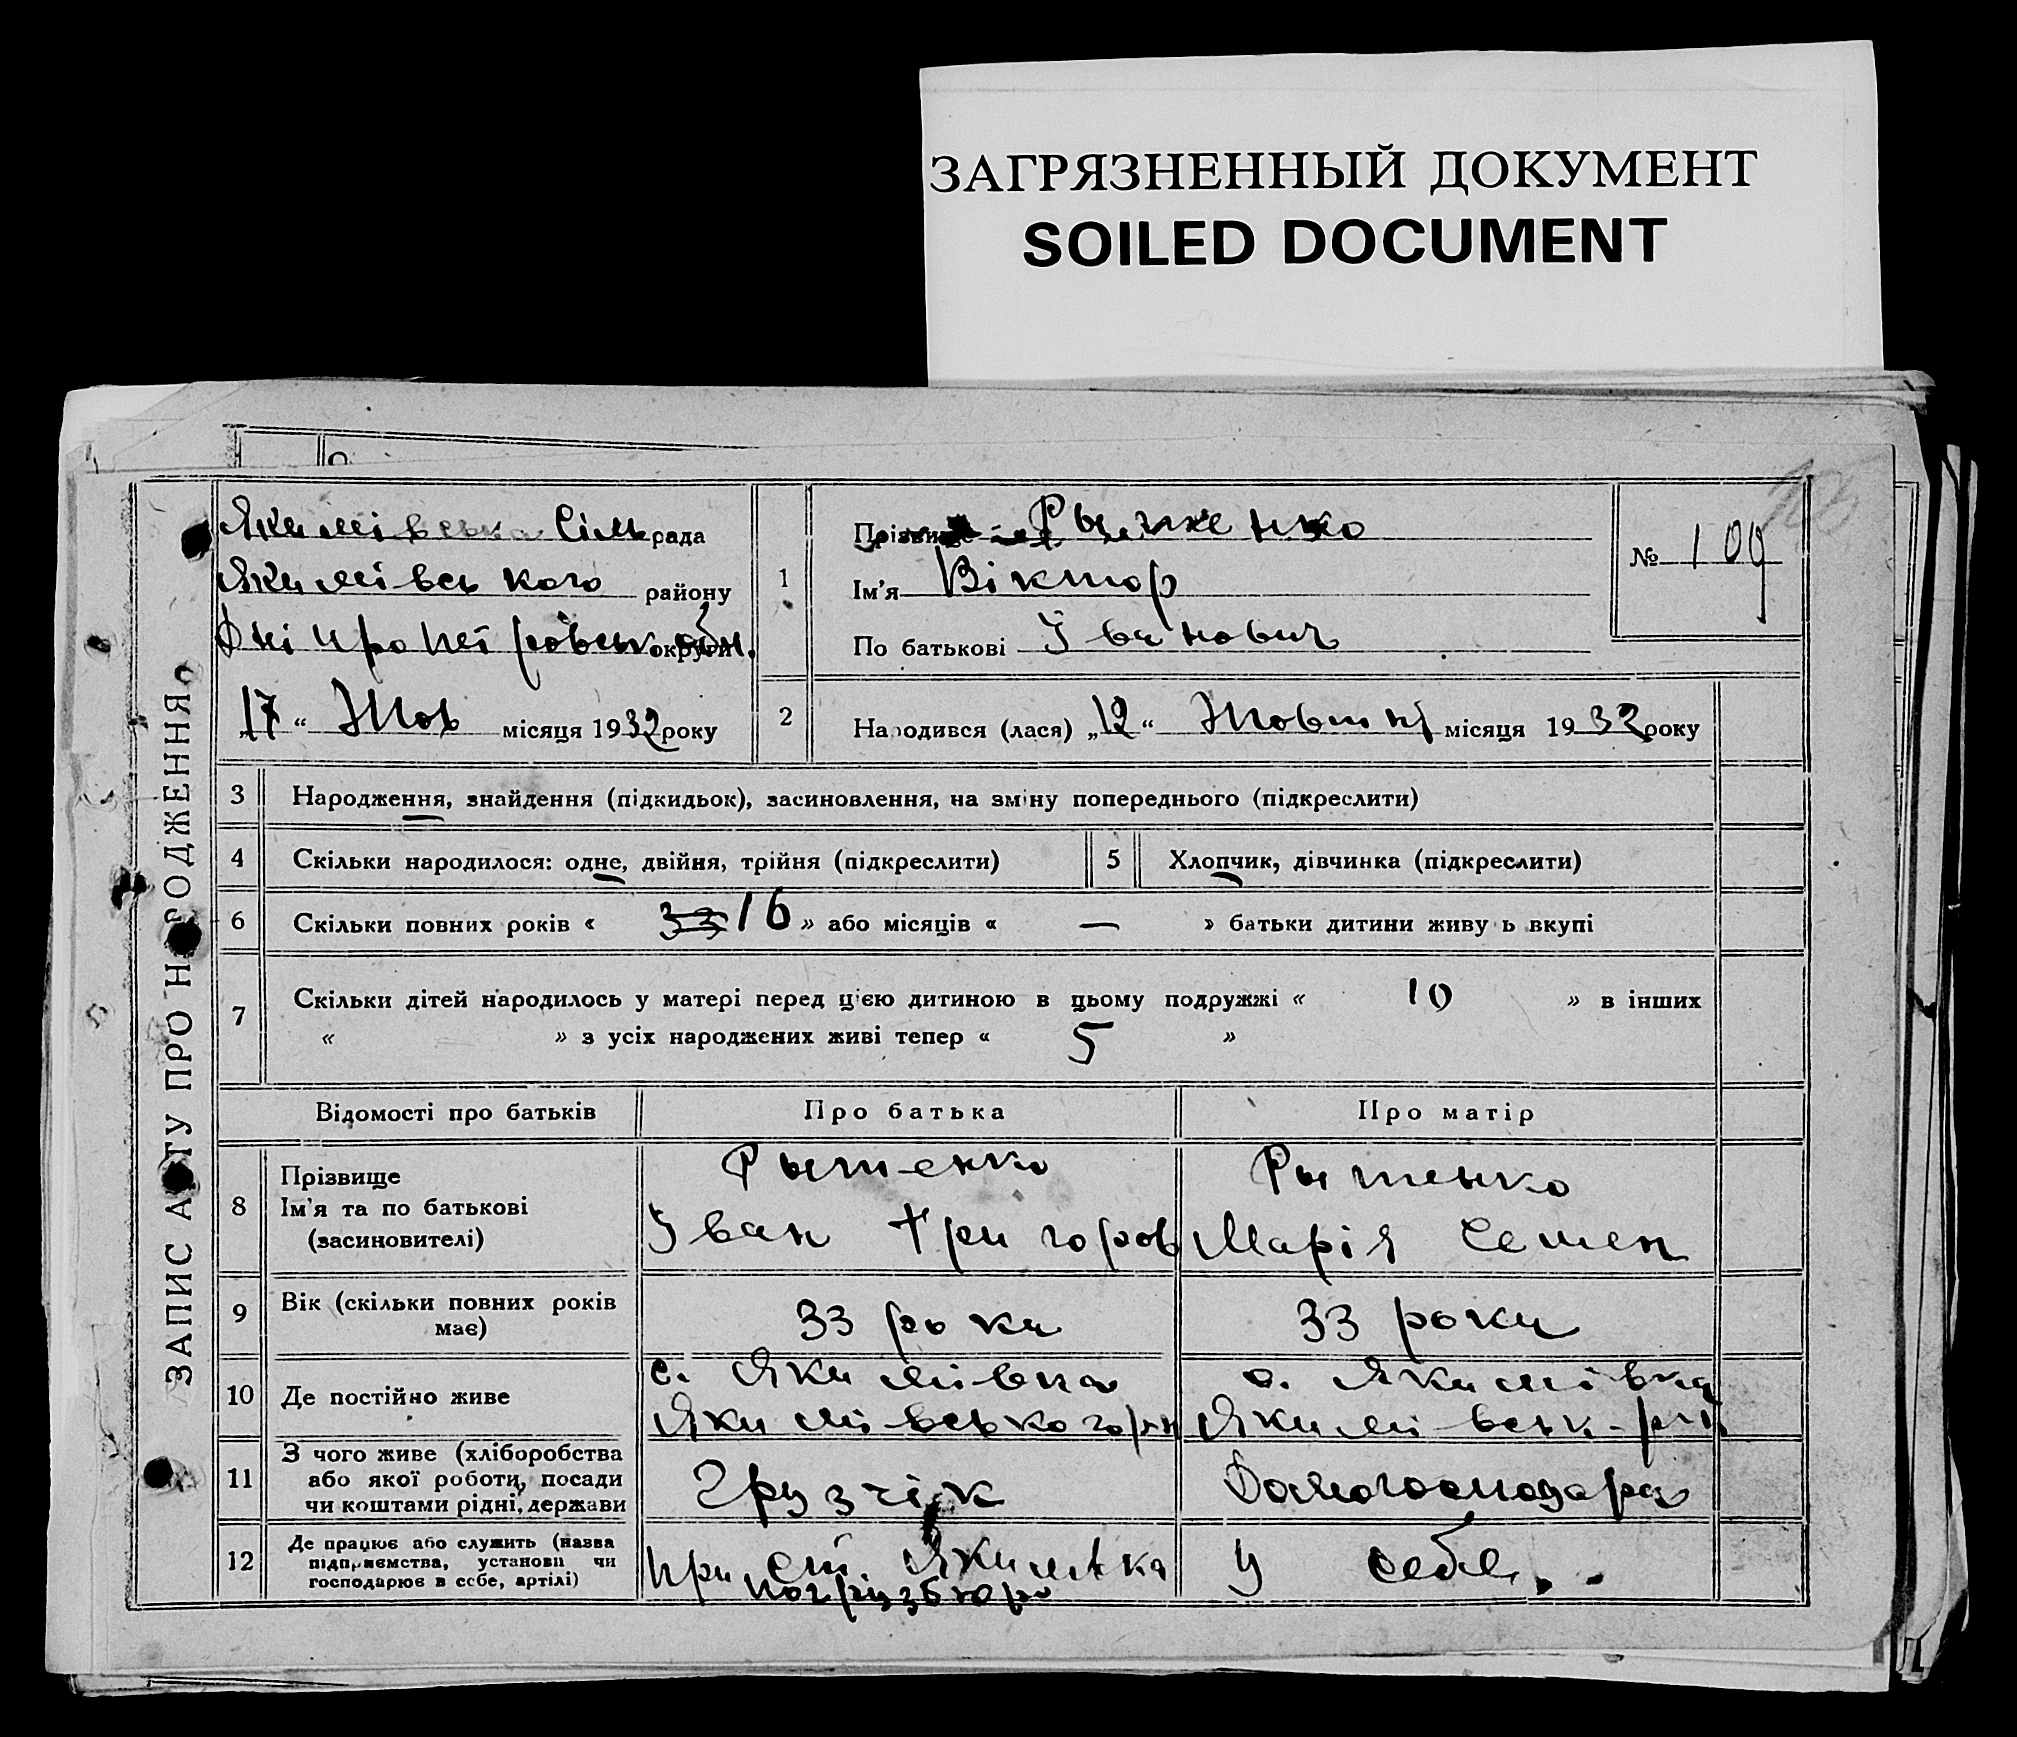 ЗАГРЯЗНЕННЫЙ ДОКУМЕНТ
SOILED DOCUMENT
ЗАПИС АКТУ ПРО НАРОДЖЕННЯ
Якимівська Сільрада
Якимівського району
Дніпропетровськ округи обл.
„17“ Жов місяця 1932 року
1
Прізвище
Ім'я Віктор
По батькові Іванович
№ 109
2
Народився (лася) „12“ Жовтня місяця 1932 року
3 Народження, знайдення (підкидьок), засиновлення, на зміну попереднього (підкреслити)
4 Скільки народилося: одне, двійня, трійня (підкреслити) 5 Хлопчик, дівчинка (підкреслити)
6 Скільки повних років « 33 16 » або місяців « — » батьки дитини живуть вкупі
7 Скільки дітей народилось у матері перед цією дитиною в цьому подружжі « 10 » в інших
« » з усіх народжених живі тепер « 5 »
Відомості про батьків Про батька Про матір
8 Прізвище
Ім'я та по батькові
(засиновителі)
Рытенко
Іван Григоров
Рытенко
Марія Семен
9 Вік (скільки повних років
має)
33 роки 33 роки
10 Де постійно живе
с. Якимівка
Якимівського рн
с. Якимівка
Якимівськ-
11 З чого живе (хліборобства
або якої роботи, посади
чи коштами рідні, держави
Грузчік Домогосподарка
12 Де працює або служить (назва
підприємства, установи чи
господарює в себе, артілі)
при ст Якимівка
погрузбюро
У себе.